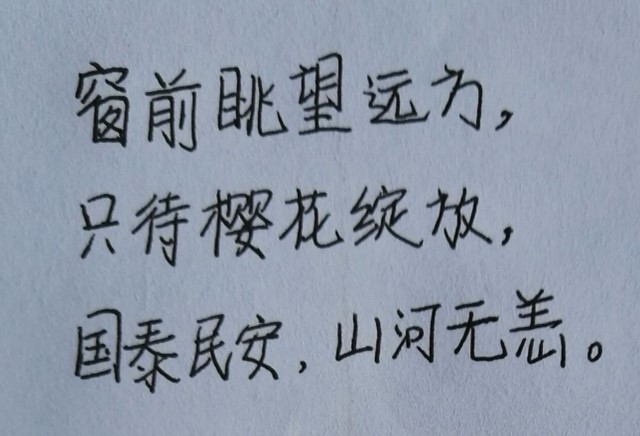 窗前眺望远方,
只待樱花绽放,
国泰民安,山河无恙。